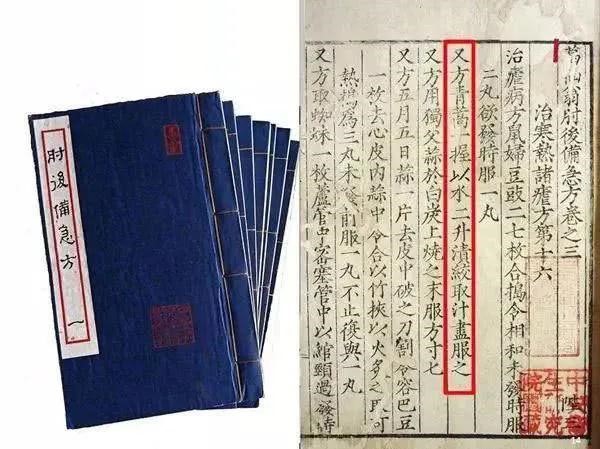 肘後備急方 一
葛仙翁肘後備急方卷之三
治寒熱諸瘧方第十六
治瘧病方鼠婦豆豉二七枚合搗令相和未發時服
二丸欲發時服一丸
又方青蒿一握以水二升漬絞取汁盡服之
又方用獨父蒜於白炭上燒之末服方寸七
又方五月五日蒜一片去皮中破之刀割令容巴豆
一枚去心皮內蒜中令合以竹挾以火炙之取可
熱搗爲三丸未發前服一丸不止復與一丸
又方取蜘蛛一枚蘆管中密塞管中以綰頸過發時
14